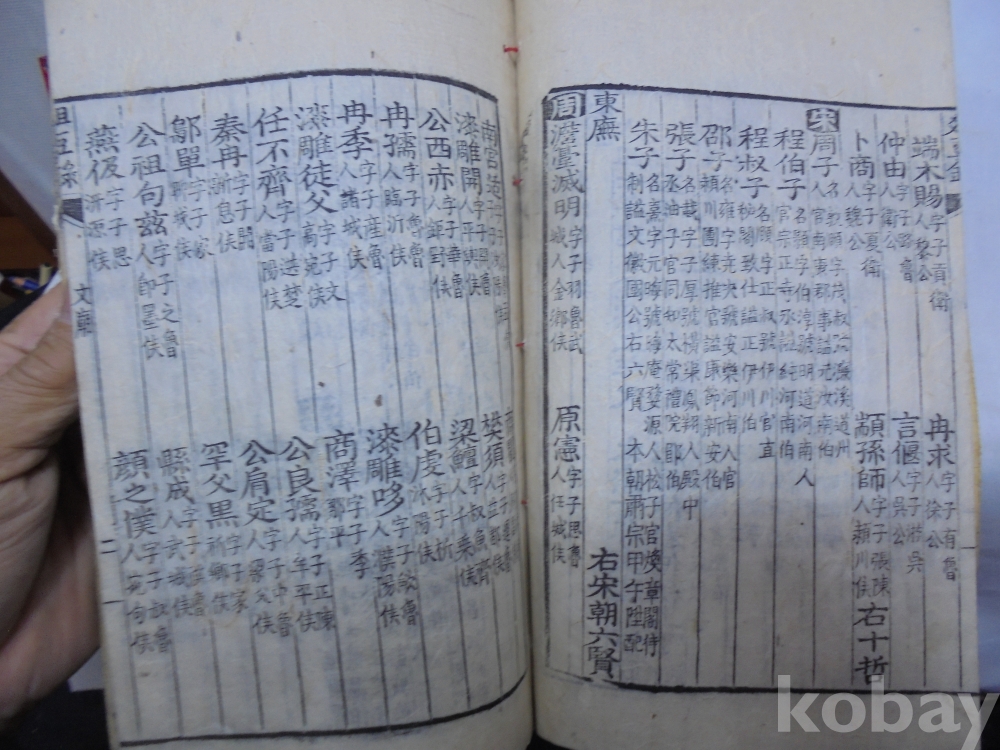 端木賜 字子貢衛人黎公 冉求 字子有魯人徐公
仲由 字子路魯人衛公 言偃 字子游吳人吳公
卜商 字子夏衛人魏公 顓孫師 字子張陳人潁川侯 右十哲
宋 周子 名敦頤字茂叔號濂溪道州人官南東郡事謚元汝南伯
程伯子 名顥字伯淳號明道河南人官宗正寺丞謚純河南伯
程叔子 名頤字正叔號伊川官直秘閣致仕謚正伊川伯
邵子 名雍字堯夫號安樂河南人官潁川團練推官謚康節新安伯
張子 名載字子厚號橫渠鳳翔人殿中丞油官同知太常禮院郿伯
朱子 名熹字元晦號晦庵婺源人松子官煥章閣侍制謚文徽國公右六賢 本朝肅宗甲午陞配 右宋朝六賢
東廡
周 澹臺滅明 字子羽魯武城人金鄉侯 原憲 字子思魯人任城侯
南宮适
漆雕開 人平輿侯 樊須
公西赤 字子華魯人鉅野侯 梁鱣 字叔魚齊人千乘侯
冉孺 字子魯魯人臨沂侯 伯虔 字子析沭陽侯
冉季 字子產魯人諸城侯 漆雕哆 字子斂魯人濮陽侯
漆雕徒父 字子文高宛侯 商澤 字子季鄒平侯
任不齊 字子選楚人當陽侯 公良孺 字子正陳人牟平侯
秦冉 字子開新息侯 公肩定 字子中魯人梁父侯
鄔單 字子家聊城侯 罕父黑 字子家祈鄉侯
公祖句茲 字子之魯人即墨侯 縣成 字子祺魯人武城侯
燕伋 字子思汧源侯 顏之僕 字子叔魯人宛句侯
文廟 二